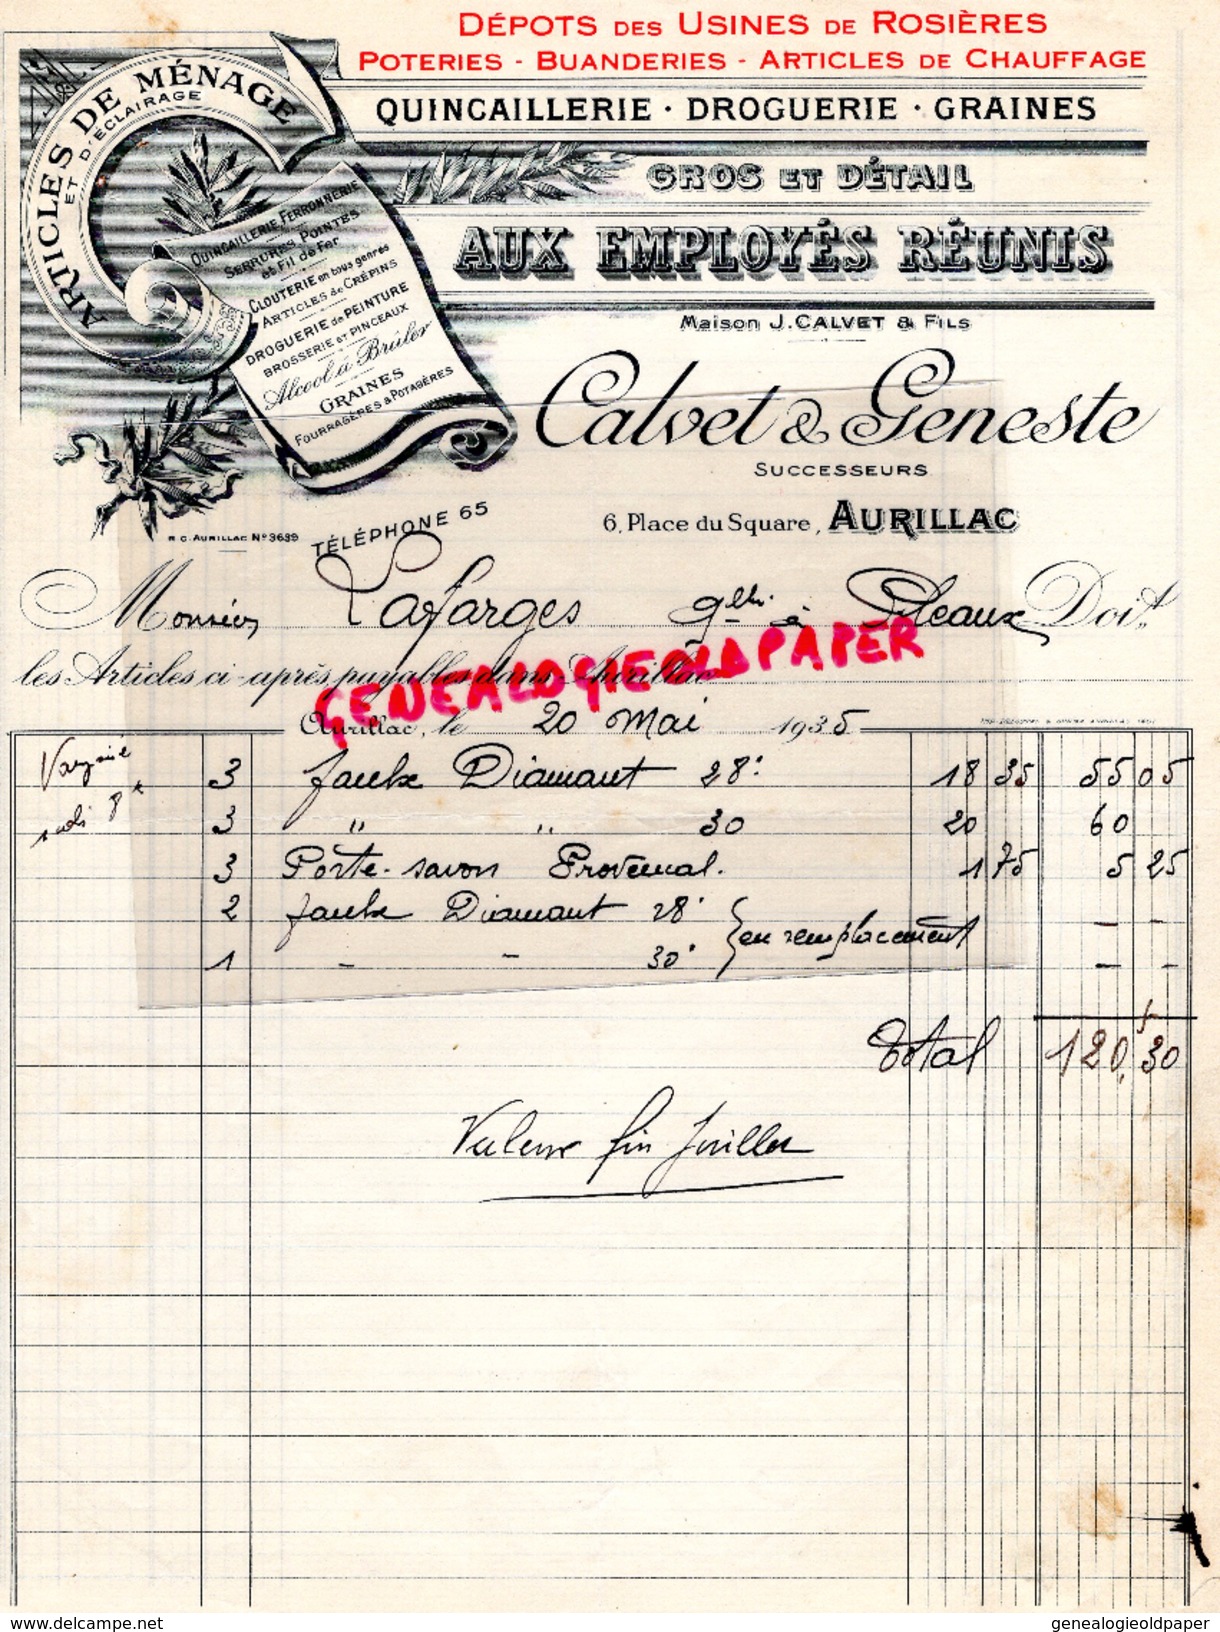 DÉPOTS DES USINES DE ROSIÈRES
POTERIES - BUANDERIES - ARTICLES DE CHAUFFAGE
QUINCAILLERIE · DROGUERIE · GRAINES
GROS ET DÉTAIL
AUX EMPLOYÉS RÉUNIS
Maison J. CALVET & FILS
Calvet & Geneste
SUCCESSEURS
6, Place du Square, AURILLAC
ARTICLES DE MÉNAGE
ET D'ÉCLAIRAGE
QUINCAILLERIE FERRONNERIE
SERRURES POINTES
et Fil de Fer
CLOUTERIE en tous genres
ARTICLES de CRÉPINS
DROGUERIE de PEINTURE
BROSSERIE ET PINCEAUX
Alcool à Brûler
GRAINES
FOURRAGÈRES & POTAGÈRES
R.C. AURILLAC Nº 3639
TÉLÉPHONE 65
Monsieur Lafarges qlli. à Pleaux Doit
les Articles ci-après payables dans Aurillac
GENEALOGIEOLDPAPER
Aurillac, le 20 Mai 1935
3 faulx Diamant 28: 18 35 55 05
3 " " 30 20 60
3 Porte-savon Provençal. 1 75 5 25
2 faulx Diamant 28: — -
1 - - 30: } en remplacement — -
Total 120,30
Valeur fin Juillet
www.delcampe.net
genealogieoldpaper